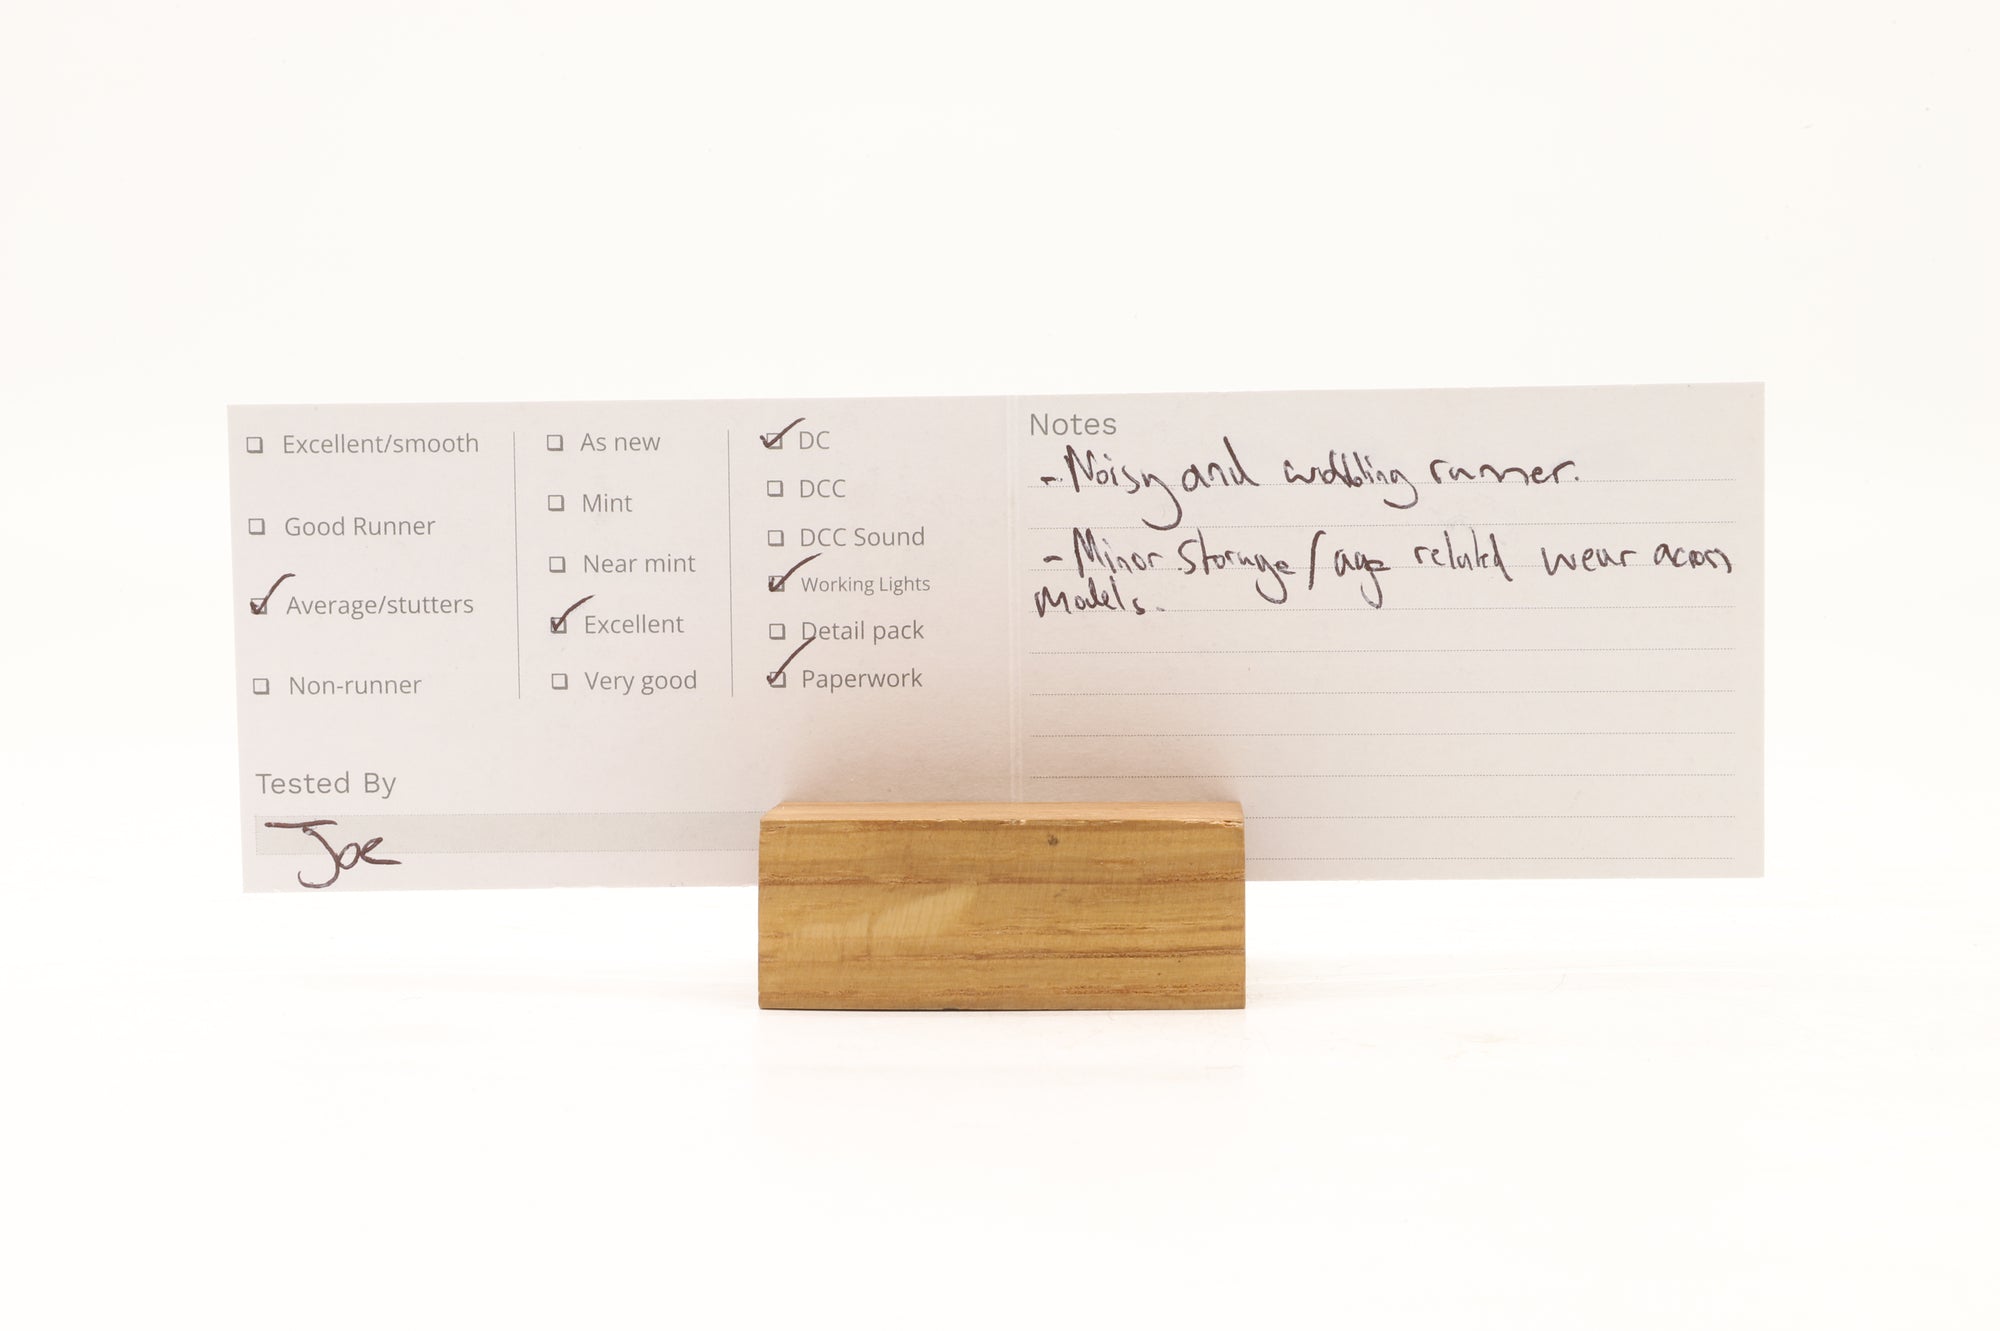 Excellent/smooth
Good Runner
Average/stutters
Non-runner
As new
Mint
Near mint
Excellent
Very good
DC
DCC
DCC Sound
Working Lights
Detail pack
Paperwork
Tested By
Joe
Notes
- Noisy and wobbling runner.
- Minor storage/age related wear across
models.